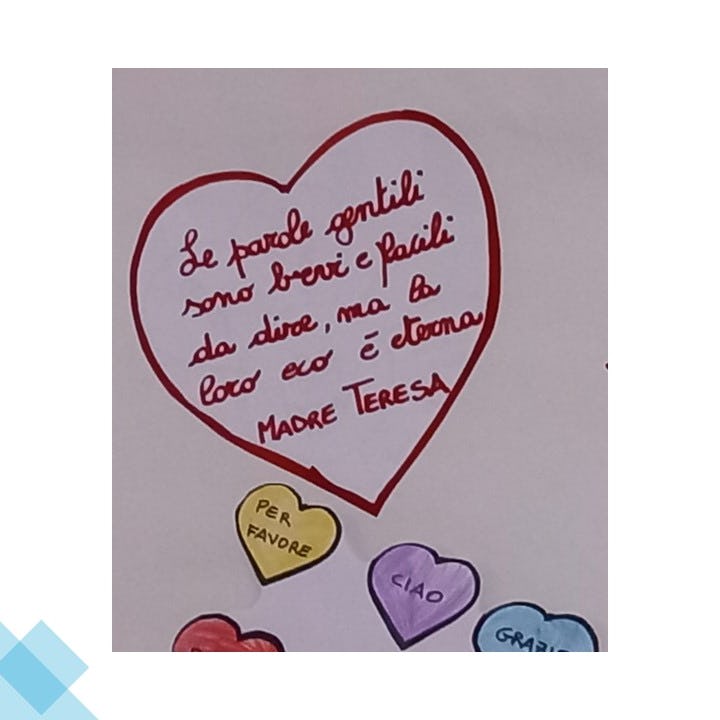 Le parole gentili
sono brevi e facili
da dire, ma la
loro eco è eterna
MADRE TERESA
PER
FAVORE
CIAO